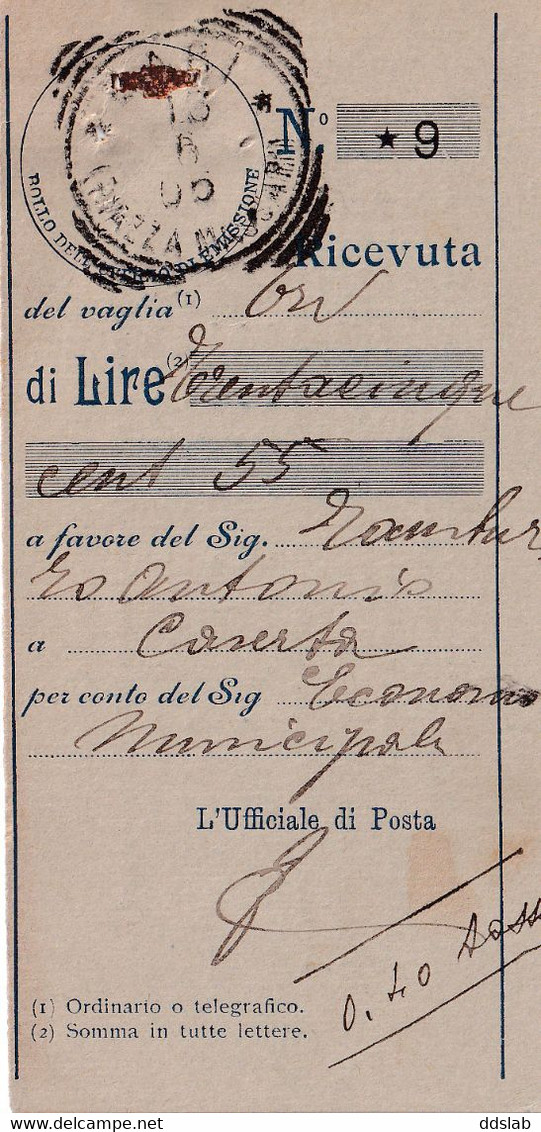 BARI
13
8
05
(PIAZZA M
BOLLO DELL'UFFICIO DI EMISSIONE
N.º * 9
Ricevuta
del vaglia (1) Ord
di Lire (2) Trentacinque
cent 55
a favore del Sig. Tambur
ro Antonio
a Caserta
per conto del Sig Economo
Municipale
L'Ufficiale di Posta
0.40 Tassa
(1) Ordinario o telegrafico.
(2) Somma in tutte lettere.
ddslab